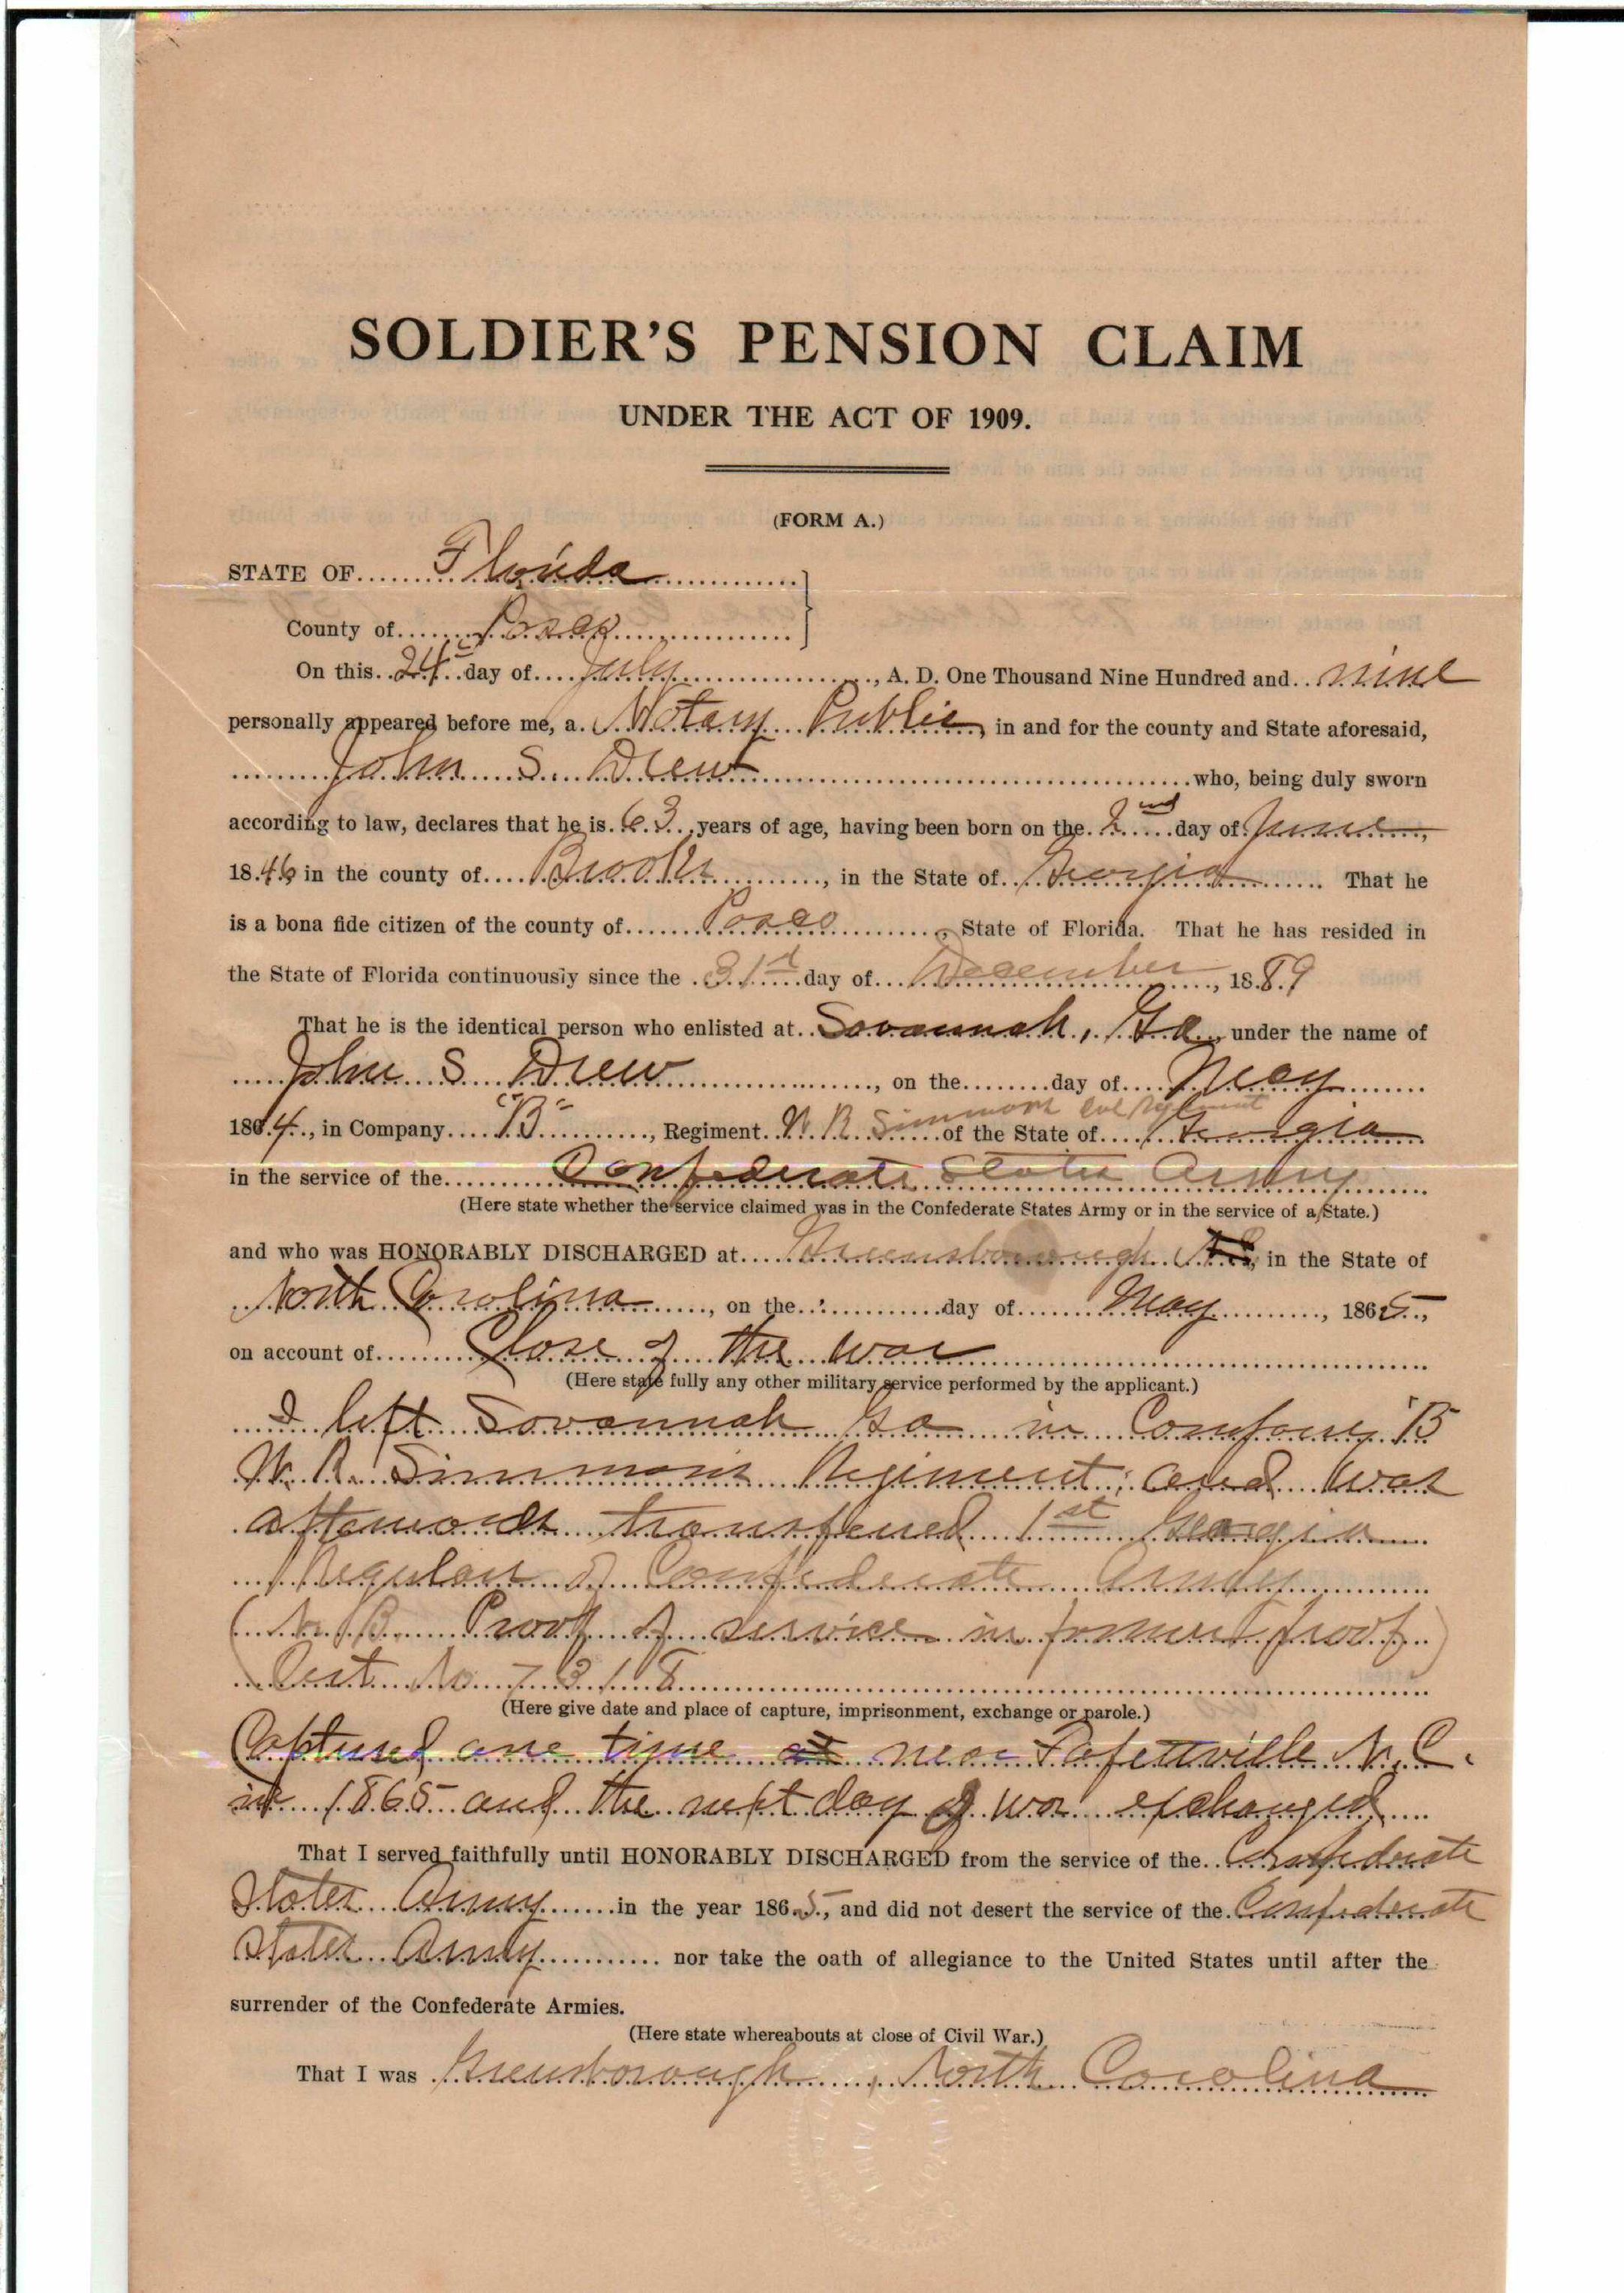 SOLDIER'S PENSION CLAIM
UNDER THE ACT OF 1909.
(FORM A.)
STATE OF Florida
County of Pasco
On this 24th day of July, A. D. One Thousand Nine Hundred and nine
personally appeared before me, a Notary Public, in and for the county and State aforesaid,
John S. Drew who, being duly sworn
according to law, declares that he is 63 years of age, having been born on the 2nd day of June,
1846 in the county of Brooks, in the State of Georgia. That he
is a bona fide citizen of the county of Pasco, State of Florida. That he has resided in
the State of Florida continuously since the 31st day of December, 1889
That he is the identical person who enlisted at Savannah, Ga., under the name of
John S. Drew, on the day of May
1864, in Company "B", Regiment W. R. Simmons of the State of Georgia
in the service of the Confederate States Army
(Here state whether the service claimed was in the Confederate States Army or in the service of a State.)
and who was HONORABLY DISCHARGED at Greensborough N.C., in the State of
North Carolina, on the day of May, 1865,
on account of Close of the war
(Here state fully any other military service performed by the applicant.)
I left Savannah Ga in Company B
W. R. Simmons Regiment; and was
afterwards transfered 1st Georgia
Regulars of Confederate Army
(N. B. Proof of service in former proof)
Cert. No 7318
(Here give date and place of capture, imprisonment, exchange or parole.)
Captured one time at near Fafettville N. C.
in 1865 and the next day I was exchanged
That I served faithfully until HONORABLY DISCHARGED from the service of the Confederate
States Army in the year 1865, and did not desert the service of the Confederate
States Army nor take the oath of allegiance to the United States until after the
surrender of the Confederate Armies.
(Here state whereabouts at close of Civil War.)
That I was Greensborough, North Carolina